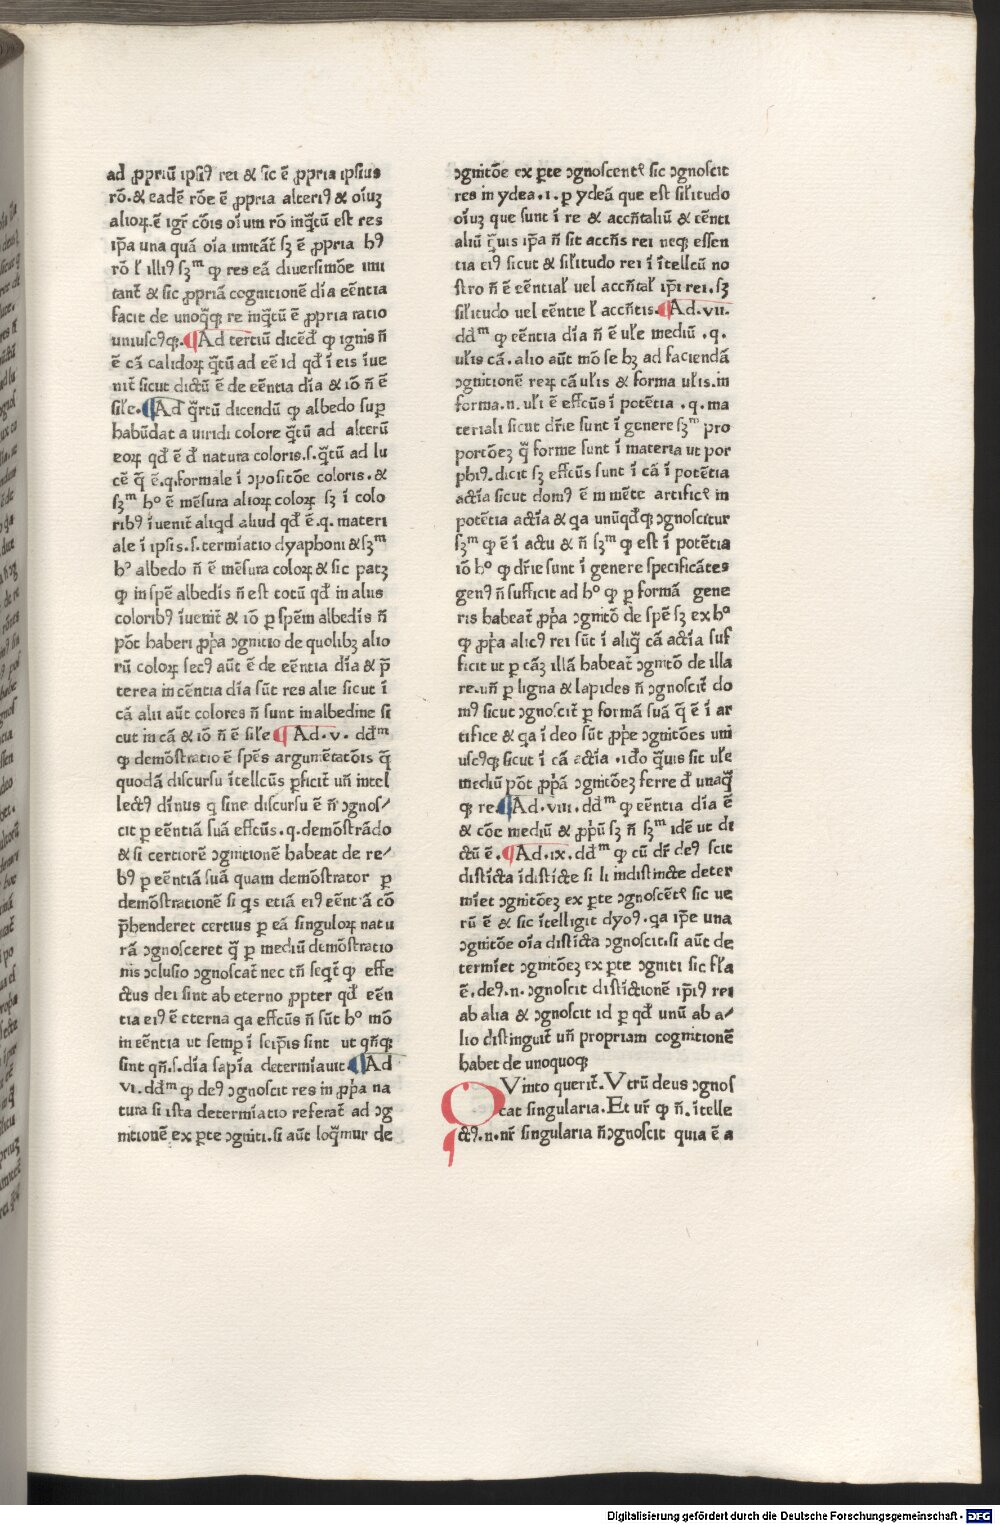 ad ꝓpriū ipsiꝰ rei & sic ē ꝓpria ipsius
rōē & eadē rōe ē ꝓpria alteriꝰ & oiūꝫ
alioꝝ. ē igr̄ cōis oīum rō inqꝫtū est res
ip̄a una quā oīa imitāt̄ sꝫ ē ꝓpria hꝰ
rō l̄ illiꝰ sꝫᵐ ꝙ res eā diuersimōe imi
tant̄ & sic ꝓpriā cognitionē dīa eēntia
facit de unoq̄qꝫ re inq̄tū ē ꝓpria ratio
uniuscꝰqꝫ. ¶Ad tertiū dicēd̄ ꝙ ignis n̄
ē cā calidoꝝ q̄tū ad eē id qd̄ ī eis īue
nit̄ sicut dictū ē de eēntia dīa & iō n̄ ē
sil̄e. ¶Ad q̄rtū dicendū ꝙ albedo suꝑ
habūdat a uiridi colore q̄tū ad alterū
eoꝝ qd̄ ē d̄ natura coloris.s.q̄tū ad lu
cē q̄ ē.q.formale ī ɔpositōe coloris. &
sꝫᵐ hº ē mēsura alioꝝ coloꝝ sꝫ ī colo
ribꝰ īuenit̄ aliqd aliud qd̄ ē.q. materi
ale ī ipsis.s.termīatio dyaphoni & sꝫᵐ
hº albedo n̄ ē mēsura coloꝝ & sic patꝫ
ꝙ in spē albedīs n̄ est totū qd̄ in aliis
coloribꝰ īuenit̄ & iō ꝑ spēm albedīs n̄
pōt haberi ꝓp̄a ɔgnitio de quolibꝫ alio
rū coloꝝ secꝰ aūt ē de eēntia dīa & p̄
terea in eēntia dīa sūt res alie sicut ī
cā alii aūt colores n̄ sunt in albedine si
cut in cā & iō n̄ ē sil̄e ¶Ad.v. dd̄ᵐ
ꝙ demōstratio ē spēs argumētatōis q̄
quodā discursu ītellcūs ꝑficit̄ uñ intel
lectꝰ dīnus q sine discursu ē n̄ ɔgnos-
cit ꝑ eēntiā suā effcūs.q.demōstrādo
& si certiorē ɔgnitionē habeat de re-
bꝰ ꝑ eēntiā suā quam demōstrator ꝑ
demōstrationē si qs etiā eiꝰ eēntiā cō
p̄henderet certius ꝑ eā singuloꝝ natu
rā ɔgnosceret q̄ ꝑ mediū demōstratio
nis ɔclusio ɔgnoscat̄ nec tn̄ seqt̄ ꝙ effe
ctus dei sint ab eterno ꝓpter qd̄ eēn
tia eiꝰ ē eterna qa effcūs n̄ sūt hº mō
in eēntia ut semꝑ ī seip̄is sint ut qn̄qꝫ
sint qn̄.s.dīa sapīa determīauit ¶Ad
vi. dd̄ᵐ ꝙ deꝰ ɔgnoscit res in ꝓp̄a na
tura si ista determīatio referat̄ ad ɔg
nitionē ex ꝑte ɔgniti.si aūt loq̄mur de
ɔgnitōe ex ꝑte ɔgnoscentꝭ sic ɔgnoscit
res in ydea.i. ꝑ ydeā que est sil̄itudo
oīuꝫ que sunt ī re & accn̄taliū & eēnti
aliū q̄uis ip̄a n̄ sit accn̄s rei neqꝫ essen
tia eiꝰ sicut & sil̄itudo rei ī ītellcū no
stro n̄ ē eēntial̄ uel accn̄tal̄ ip̄i rei.sꝫ
sil̄itudo uel eēntie l̄ accn̄tis. ¶Ad.vii.
dd̄ᵐ ꝙ eēntia dīa n̄ ē ul̄e mediū .q.
ul̄is cā. alio aūt mō se hꝫ ad faciendā
ɔgnitionē reꝝ cā ul̄is & forma ul̄is.in
forma.n. ul̄i ē effcūs ī potētia .q. ma
teriali sicut dr̄ie sunt ī genere sꝫᵐ pro
portōeꝫ q̄ forme sunt ī materia ut por
phiꝰ. dicit sꝫ effcūs sunt ī cā ī potētia
actīa sicut domꝰ ē in mēte artificꝭ in
potētia actīa & qa unūqd̄qꝫ ɔgnoscitur
sꝫᵐ ꝙ ē ī actu & n̄ sꝫᵐ ꝙ est ī potētia
iō hº ꝙ dr̄ie sunt ī genere specificātes
genꝰ n̄ sufficit ad hº ꝙ ꝑ formā gene
ris habeat̄ ꝓp̄a ɔgnitō de spē sꝫ ex hº
ꝙ ꝓp̄a alicꝰ rei sūt ī aliq̄ cā actīa suf
ficit ut ꝑ cāꝫ illā habeat̄ ɔgnitō de illa
re.uñ ꝑ ligna & lapides n̄ ɔgnoscit̄ do
mꝰ sicut ɔgnoscit̄ ꝑ formā suā q̄ ē ī ar
tifice & qa ī deo sūt ꝓp̄e ɔgnitōes uni
uscꝰqꝫ sicut ī cā actīa .idō q̄uis sit ul̄e
mediū pōt ꝓp̄ā ɔgnitōeꝫ ferre d̄ unaq̄
qꝫ re. ¶Ad.viii.dd̄ᵐ ꝙ eēntia dīa ē
& cōe mediū & ꝓp̄ū sꝫ n̄ sꝫᵐ idē ut di
ctū ē. ¶Ad.ix.dd̄ᵐ ꝙ cū dr̄ deꝰ scit
distīcta īdistīcte si li indistincte deter
mīet ɔgnitōeꝫ ex ꝑte ɔgnoscētꝭ sic ue
rū ē & sic ītelligit dyoꝰ.qa ip̄e una
ɔgnitōe oīa distīcta ɔgnoscit.si aūt de
termīet ɔgnitōeꝫ ex ꝑte ɔgniti sic fl̄a
ē.deꝰ.n. ɔgnoscit distīctionē ip̄iꝰ rei
ab alia & ɔgnoscit id ꝑ qd̄ unū ab a-
lio distinguit̄ uñ propriam cognitionē
habet de unoquoqꝫ
QVinto querit̄.Vtrū deus ɔgnos
cat singularia.Et ur̄ ꝙ n̄.ītelle
ctꝰ.n.nr̄ singularia n̄ɔgnoscit quia ē a
Digitalisierung gefördert durch die Deutsche Forschungsgemeinschaft - DFG